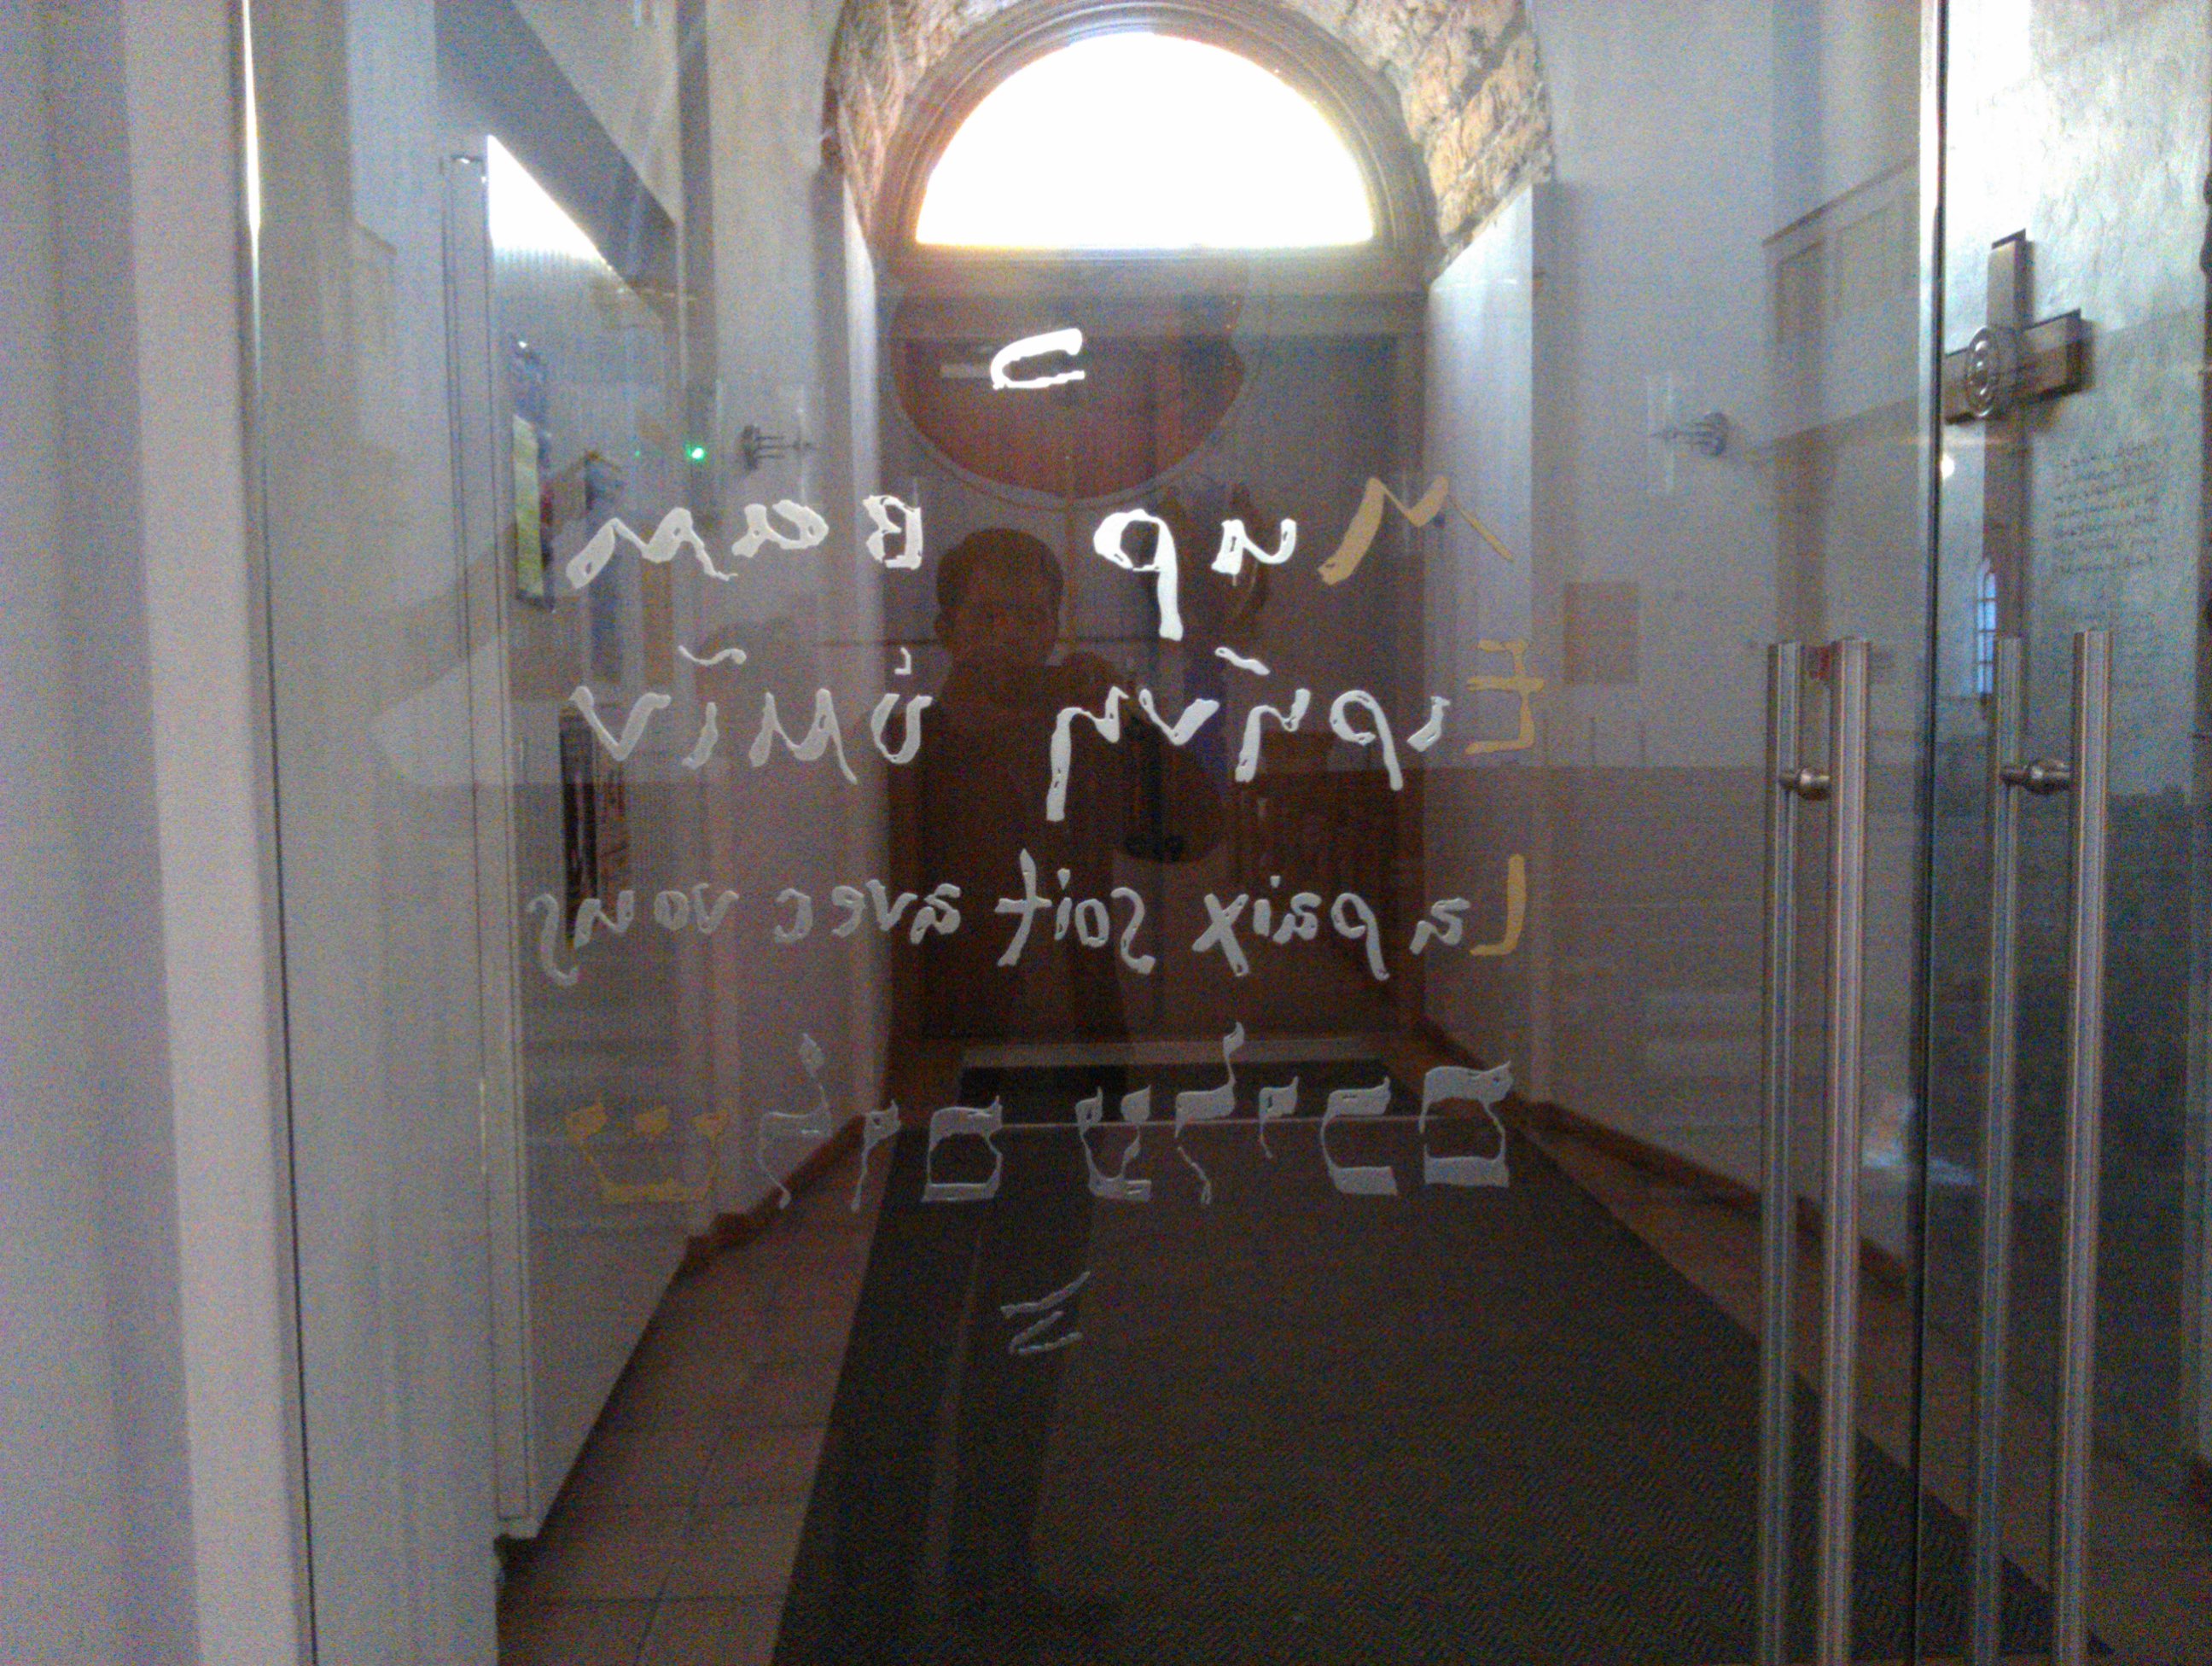 Мир Вам
Ειρήνη ὑμῖν
La paix soit avec vous
שלום עליכם